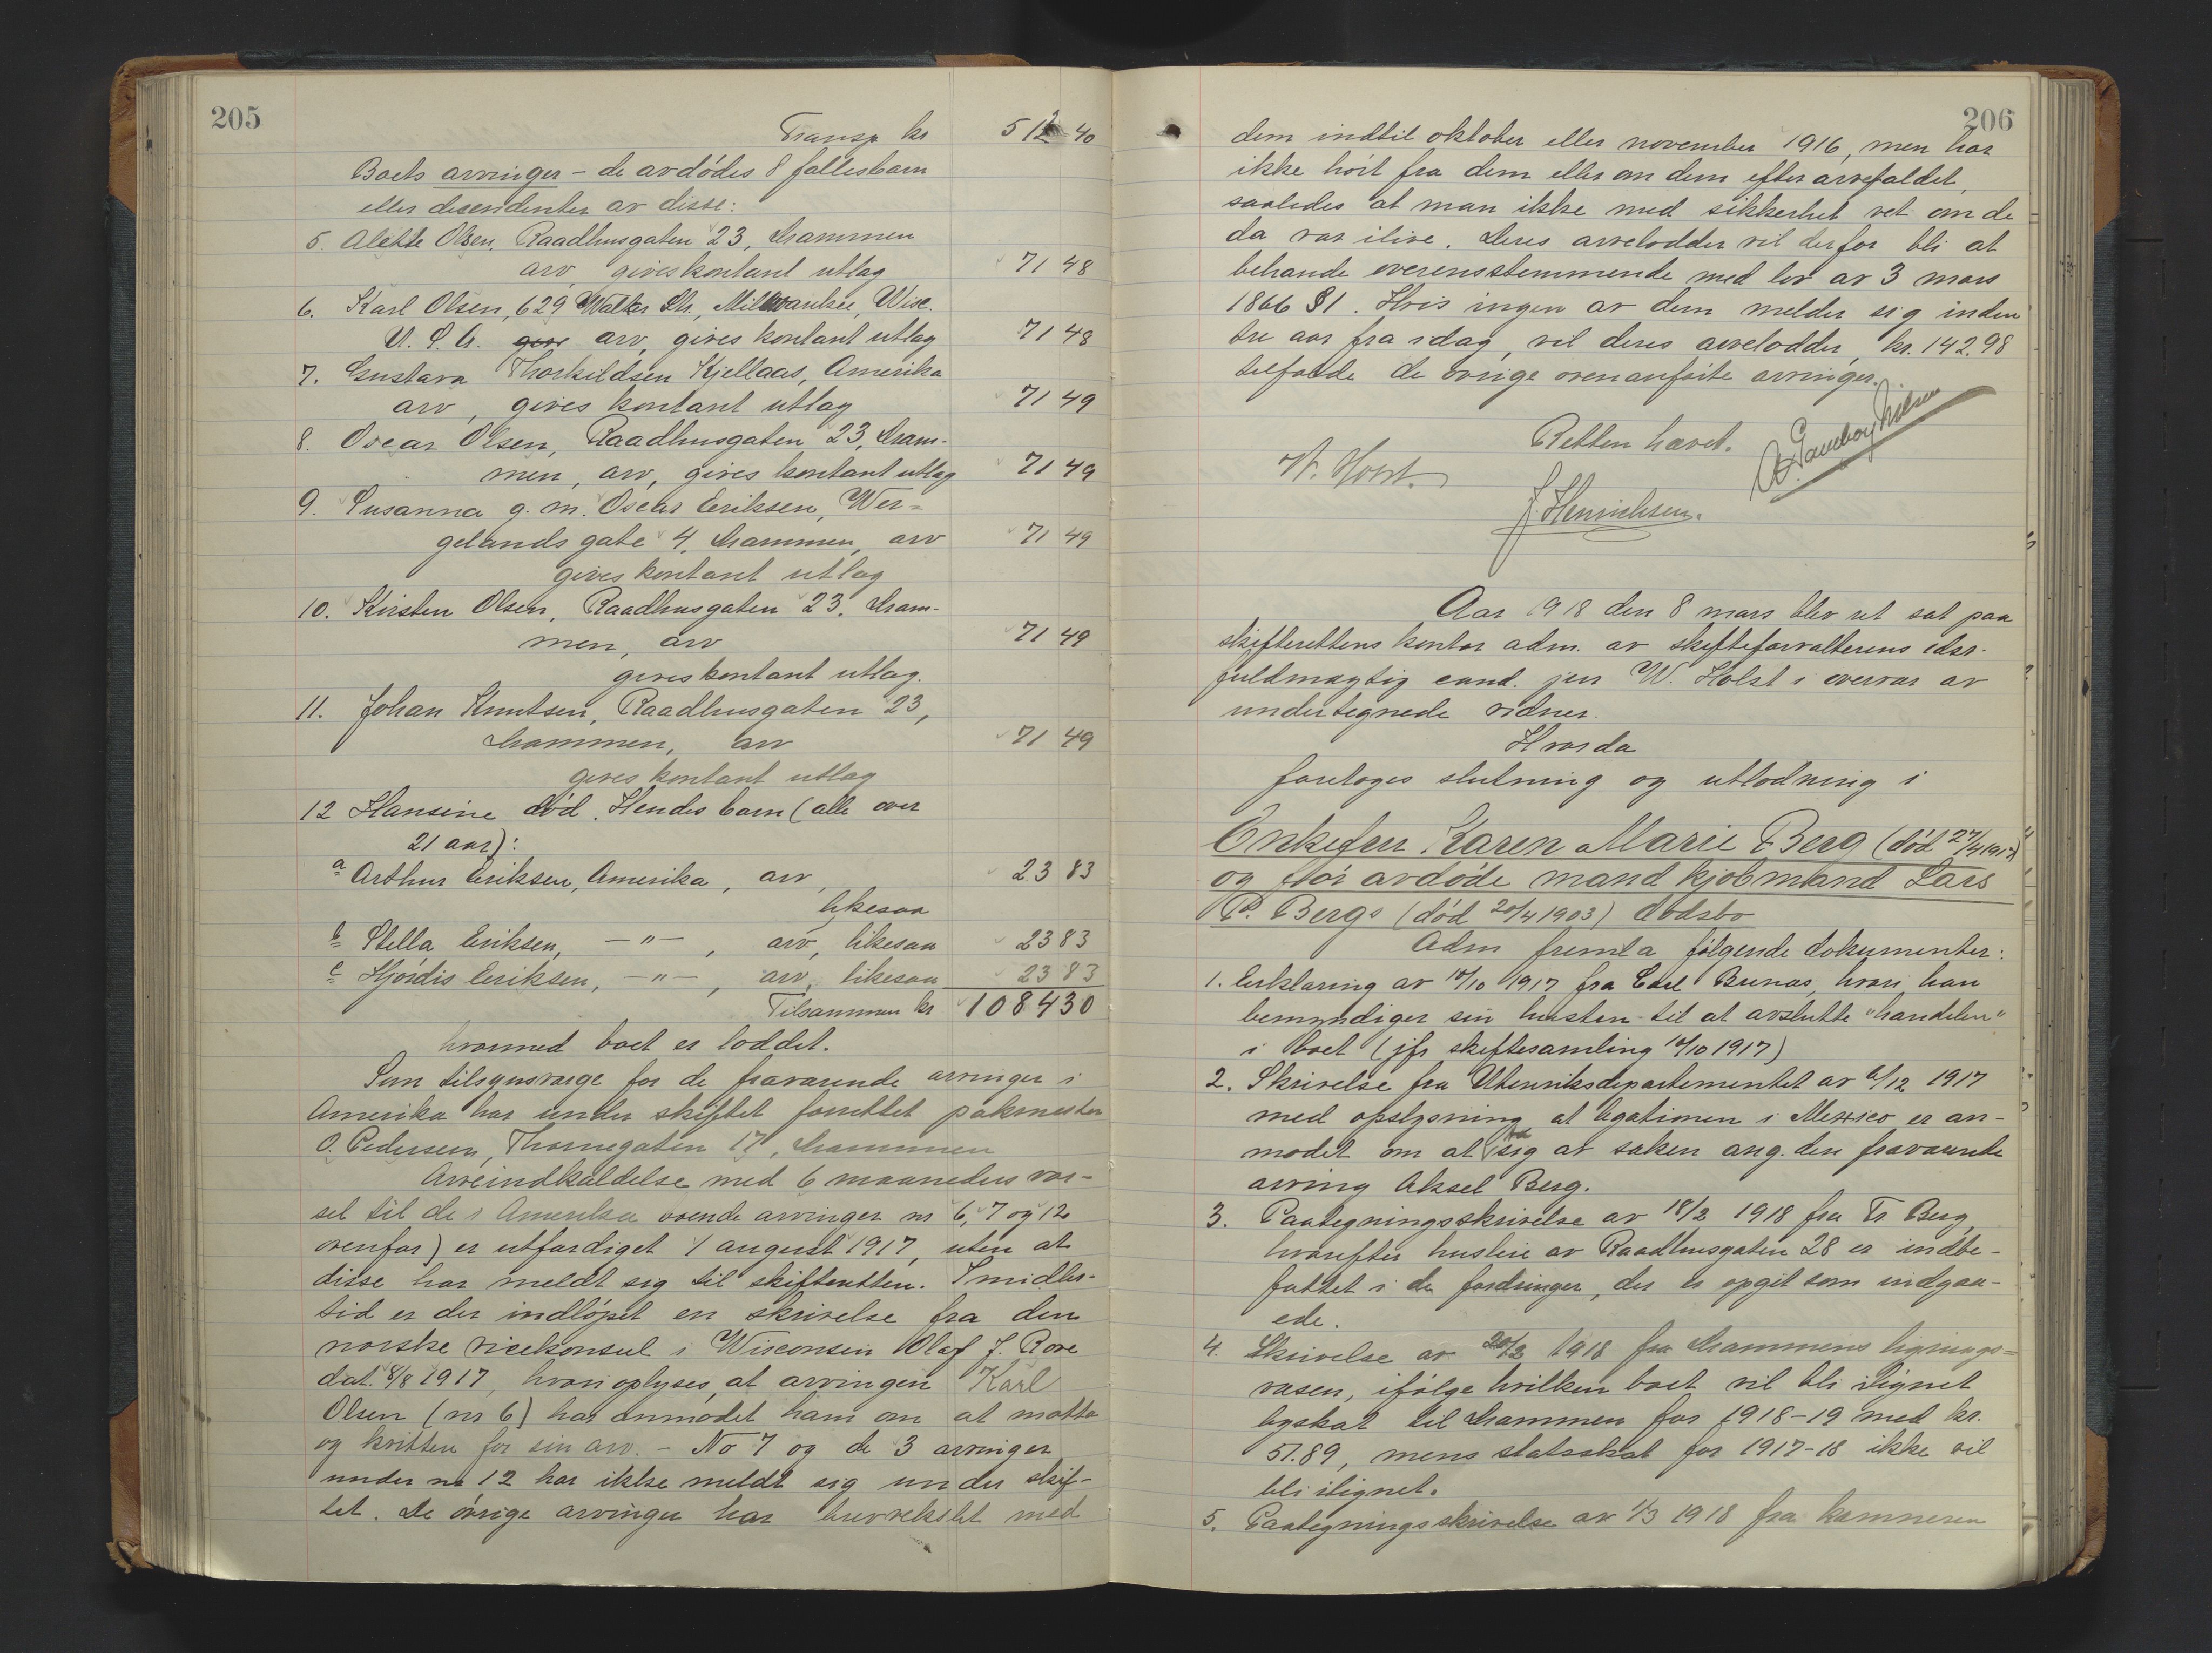 205
Transp kr 512 40
Boets arvinger - de avdødes 8 fællesbarn
eller decendenter av disse:
5. Alette Olsen, Raadhusgaten 23, Drammen
arv, gives kontant utlæg 71 48
6. Karl Olsen, 629 Walker Str., Milwaukee, Wisc.
U. S. A. arv, gives kontant utlæg 71 48
7. Gustava Thorkildsen Kjellaas, Amerika
arv, gives kontant utlæg 71 49
8. Oscar Olsen, Raadhusgaten 23, Dram-
men, arv, gives kontant utlæg 71 49
9. Susanna g. m. Oscar Eriksen, Wer-
gelandsgate 4, Drammen, arv 71 49
gives kontant utlæg
10. Kirsten Olsen, Raadhusgaten 23, Dram-
men, arv 71 49
gives kontant utlæg.
11. Johan Knutsen, Raadhusgaten 23,
Drammen, arv 71 49
gives kontant utlæg
12 Hansine død. Hendes barn (alle over
21 aar):
a Arthur Eriksen, Amerika, arv, 23 83
likesaa
b Stella Eriksen, -"-, arv, likesaa 23 83
c Hjørdis Eriksen, -"-, arv, likesaa 23 83
Tilsammen kr 1084 30
hvormed boet er loddet.
Som tilsynsværge for de fraværende arvinger i
Amerika har under skiftet forrettet pakmester
O. Pedersen, Thornegaten 17, Drammen
Arveindkaldelse med 6 maaneders var-
sel til de i Amerika boende arvinger nr 6, 7 og 12
ovenfor) er utfærdiget 1 august 1917, uten at
disse har meldt sig til skifteretten. Imidler-
tid er der indløpet en skrivelse fra den
norske vicekonsul i Wisconsin Olaf J. Rove
dat. 8/8 1917, hvori oplyses, at arvingen Karl
Olsen (nr 6) har anmodet ham om at motta
og kvittere for sin arv. - No 7 og de 3 arvinger
under no 12 har ikke meldt sig under skif-
tet. De øvrige arvinger har brevvekslet med
206
dem indtil oktober eller november 1916, men har
ikke hørt fra dem eller om dem efter arvefaldet,
saaledes at man ikke med sikkerhet vet om de
da var ilive. Deres arvelodder vil derfor bli at
behandle overensstemmende med lov av 3 mars
1866 § 1. Hvis ingen av dem melder sig inden
tre aar fra idag, vil deres arvelodder, kr. 142.98
tilfalde de øvrige ovenanførte arvinger.
Retten hævet.
W. Holst.
J. Henrichsen.
Aar 1918 den 8 mars blev ret sat paa
skifterettens kontor adm. av skifteforvalterens edsv.
fuldmægtig cand. jur W. Holst i overvær av
undertegnede vidner.
Hvorda
foretoges slutning og utlodning i
Enkefru Karen Marie Berg (død 27/4 1917)
og før avdøde mand kjøbmand Lars
P. Bergs (død 20/4 1903) dødsbo
Adm fremla følgende dokumenter:
1. Erklæring av 10/10 1917 fra Carl Brunæs, hvori han
bemyndiger sin hustru til at avslutte "handelen"
i boet (jfr skiftesamling 10/10 1917)
2. Skrivelse fra Utenriksdepartementet av 6/12 1917
med oplysning, at legationen i Mexico er an-
modet om at ta sig av saken ang. den fraværende
arving Aksel Berg.
3. Paategningsskrivelse av 18/2 1918 fra Fr. Berg,
hvorefter husleie av Raadhusgaten 28 er indbe-
fattet i de fordringer, der er opgit som indgaa-
ede.
4. Skrivelse av 20/2 1918 fra Drammens lignings-
væsen, ifølge hvilken boet vil bli ilignet
byskat til Drammen for 1918-19 med kr.
51.89, mens statsskat for 1917-18 ikke vil
bli ilignet.
5. Paategningsskrivelse av 1/3 1918 fra kæmneren